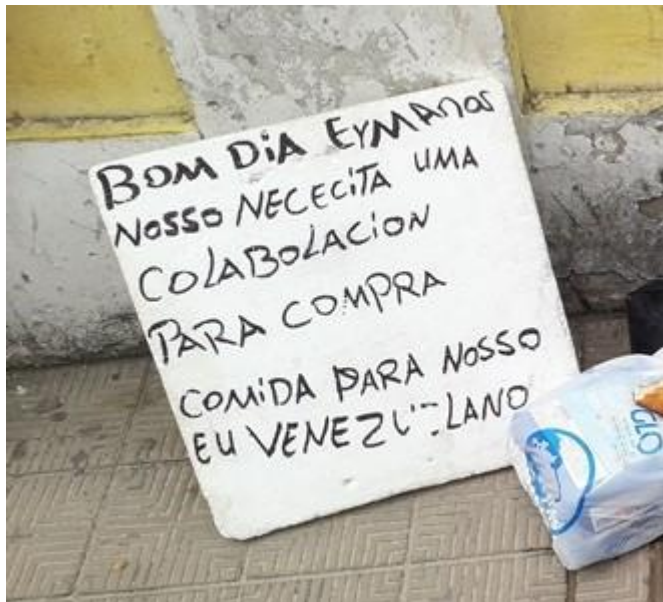 BOM DiA EYMANOS
NOSSO NECECiTA UMA
COLABOLACiON
PARA COMPRA
COMiDA PARA NOSSO
EU VENEZUELANO
GLO